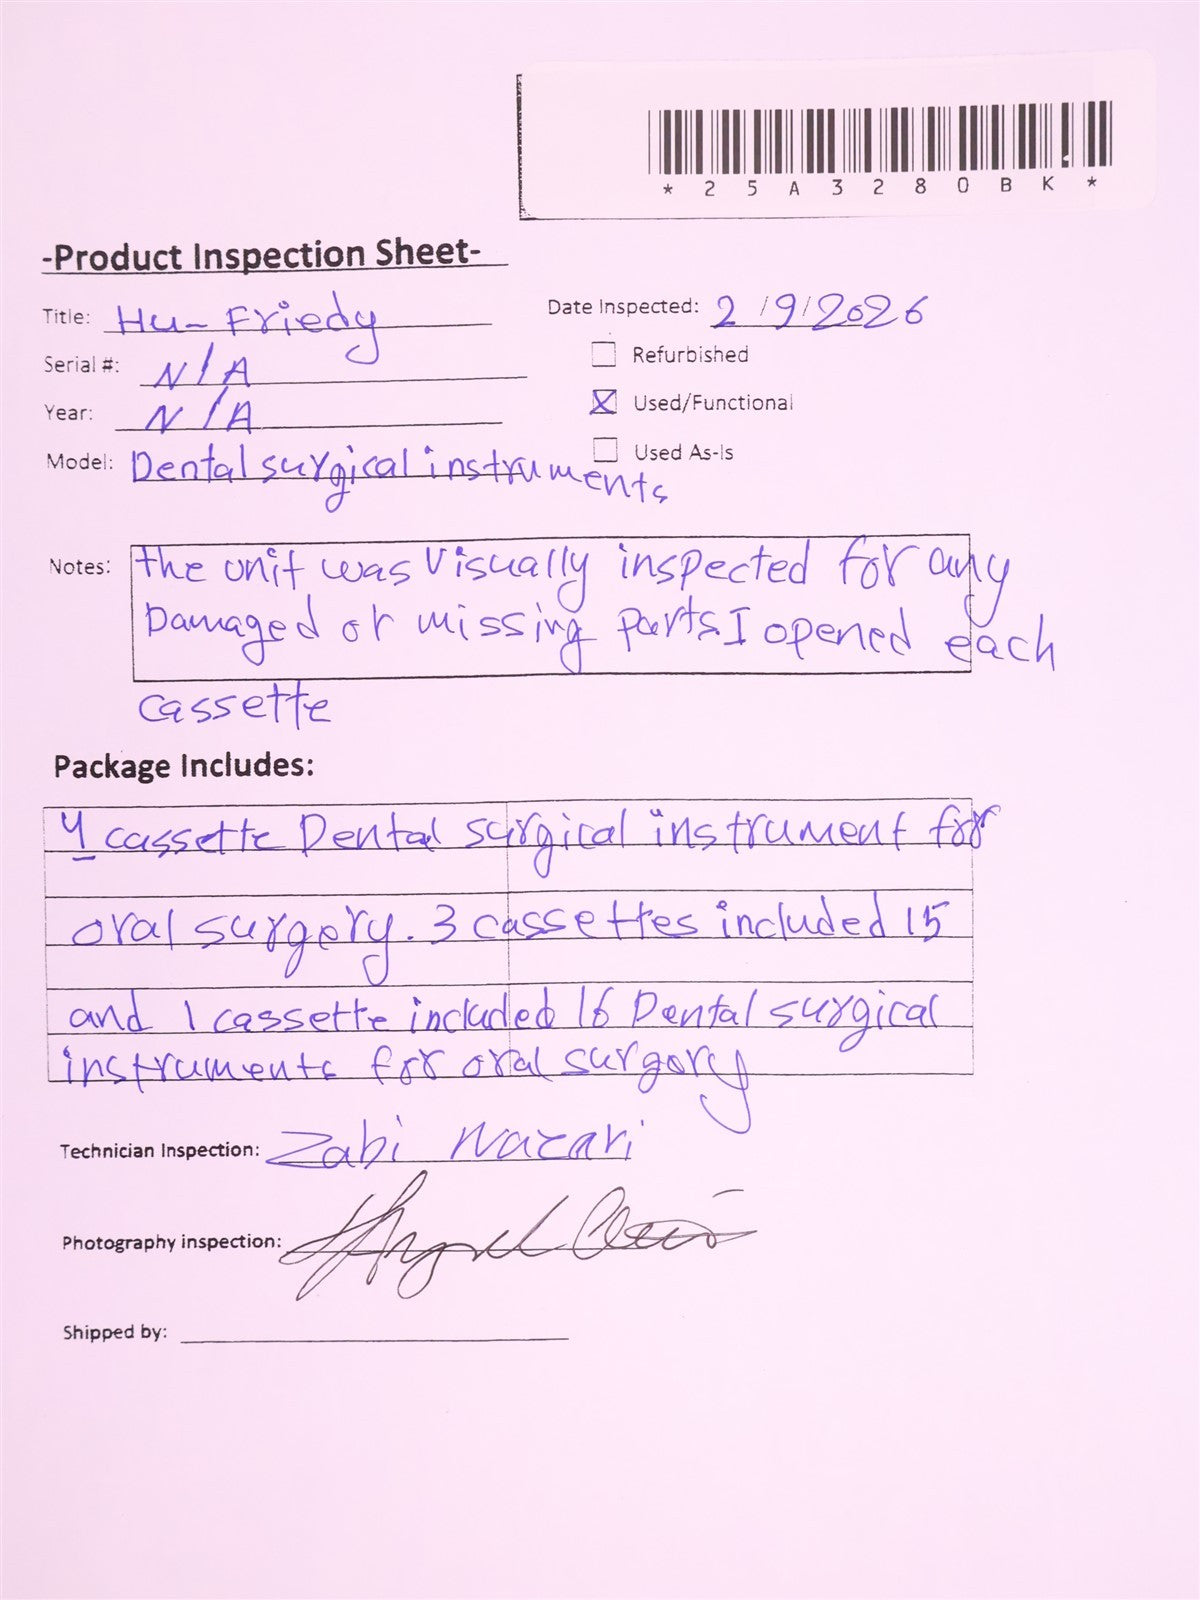 *25A3280BK*
-Product Inspection Sheet-
Title: Hu-Friedy
Date Inspected: 2/9/2026
Serial #: N/A
Refurbished
Year: N/A
Used/Functional
Model: Dental surgical instruments
Used As-Is
Notes: the unit was visually inspected for any
Damaged or missing parts. I opened each
cassette
Package Includes:
4 cassette Dental surgical instrument for
oral surgery. 3 cassettes included 15
and 1 cassette included 16 Dental surgical
instruments for oral surgory
Technician Inspection: Zabi Nazari
Photography inspection:
Shipped by: